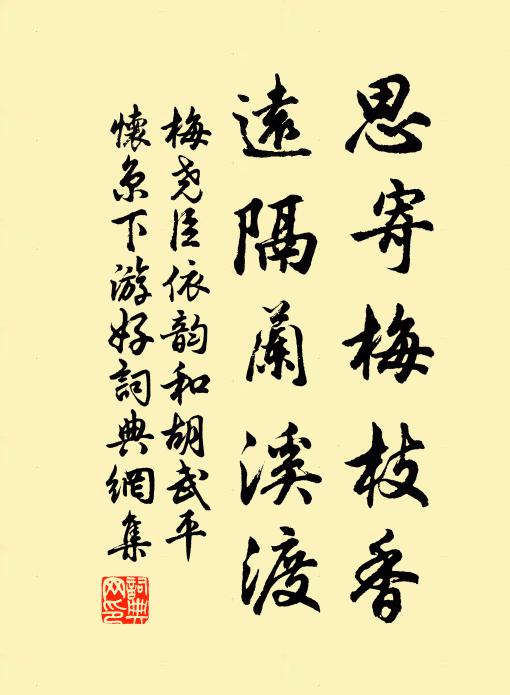 思寄梅枝香
遠隔蘭溪渡
梅堯臣依韵和胡武平
懷京下游好詞典網集
詞典網印